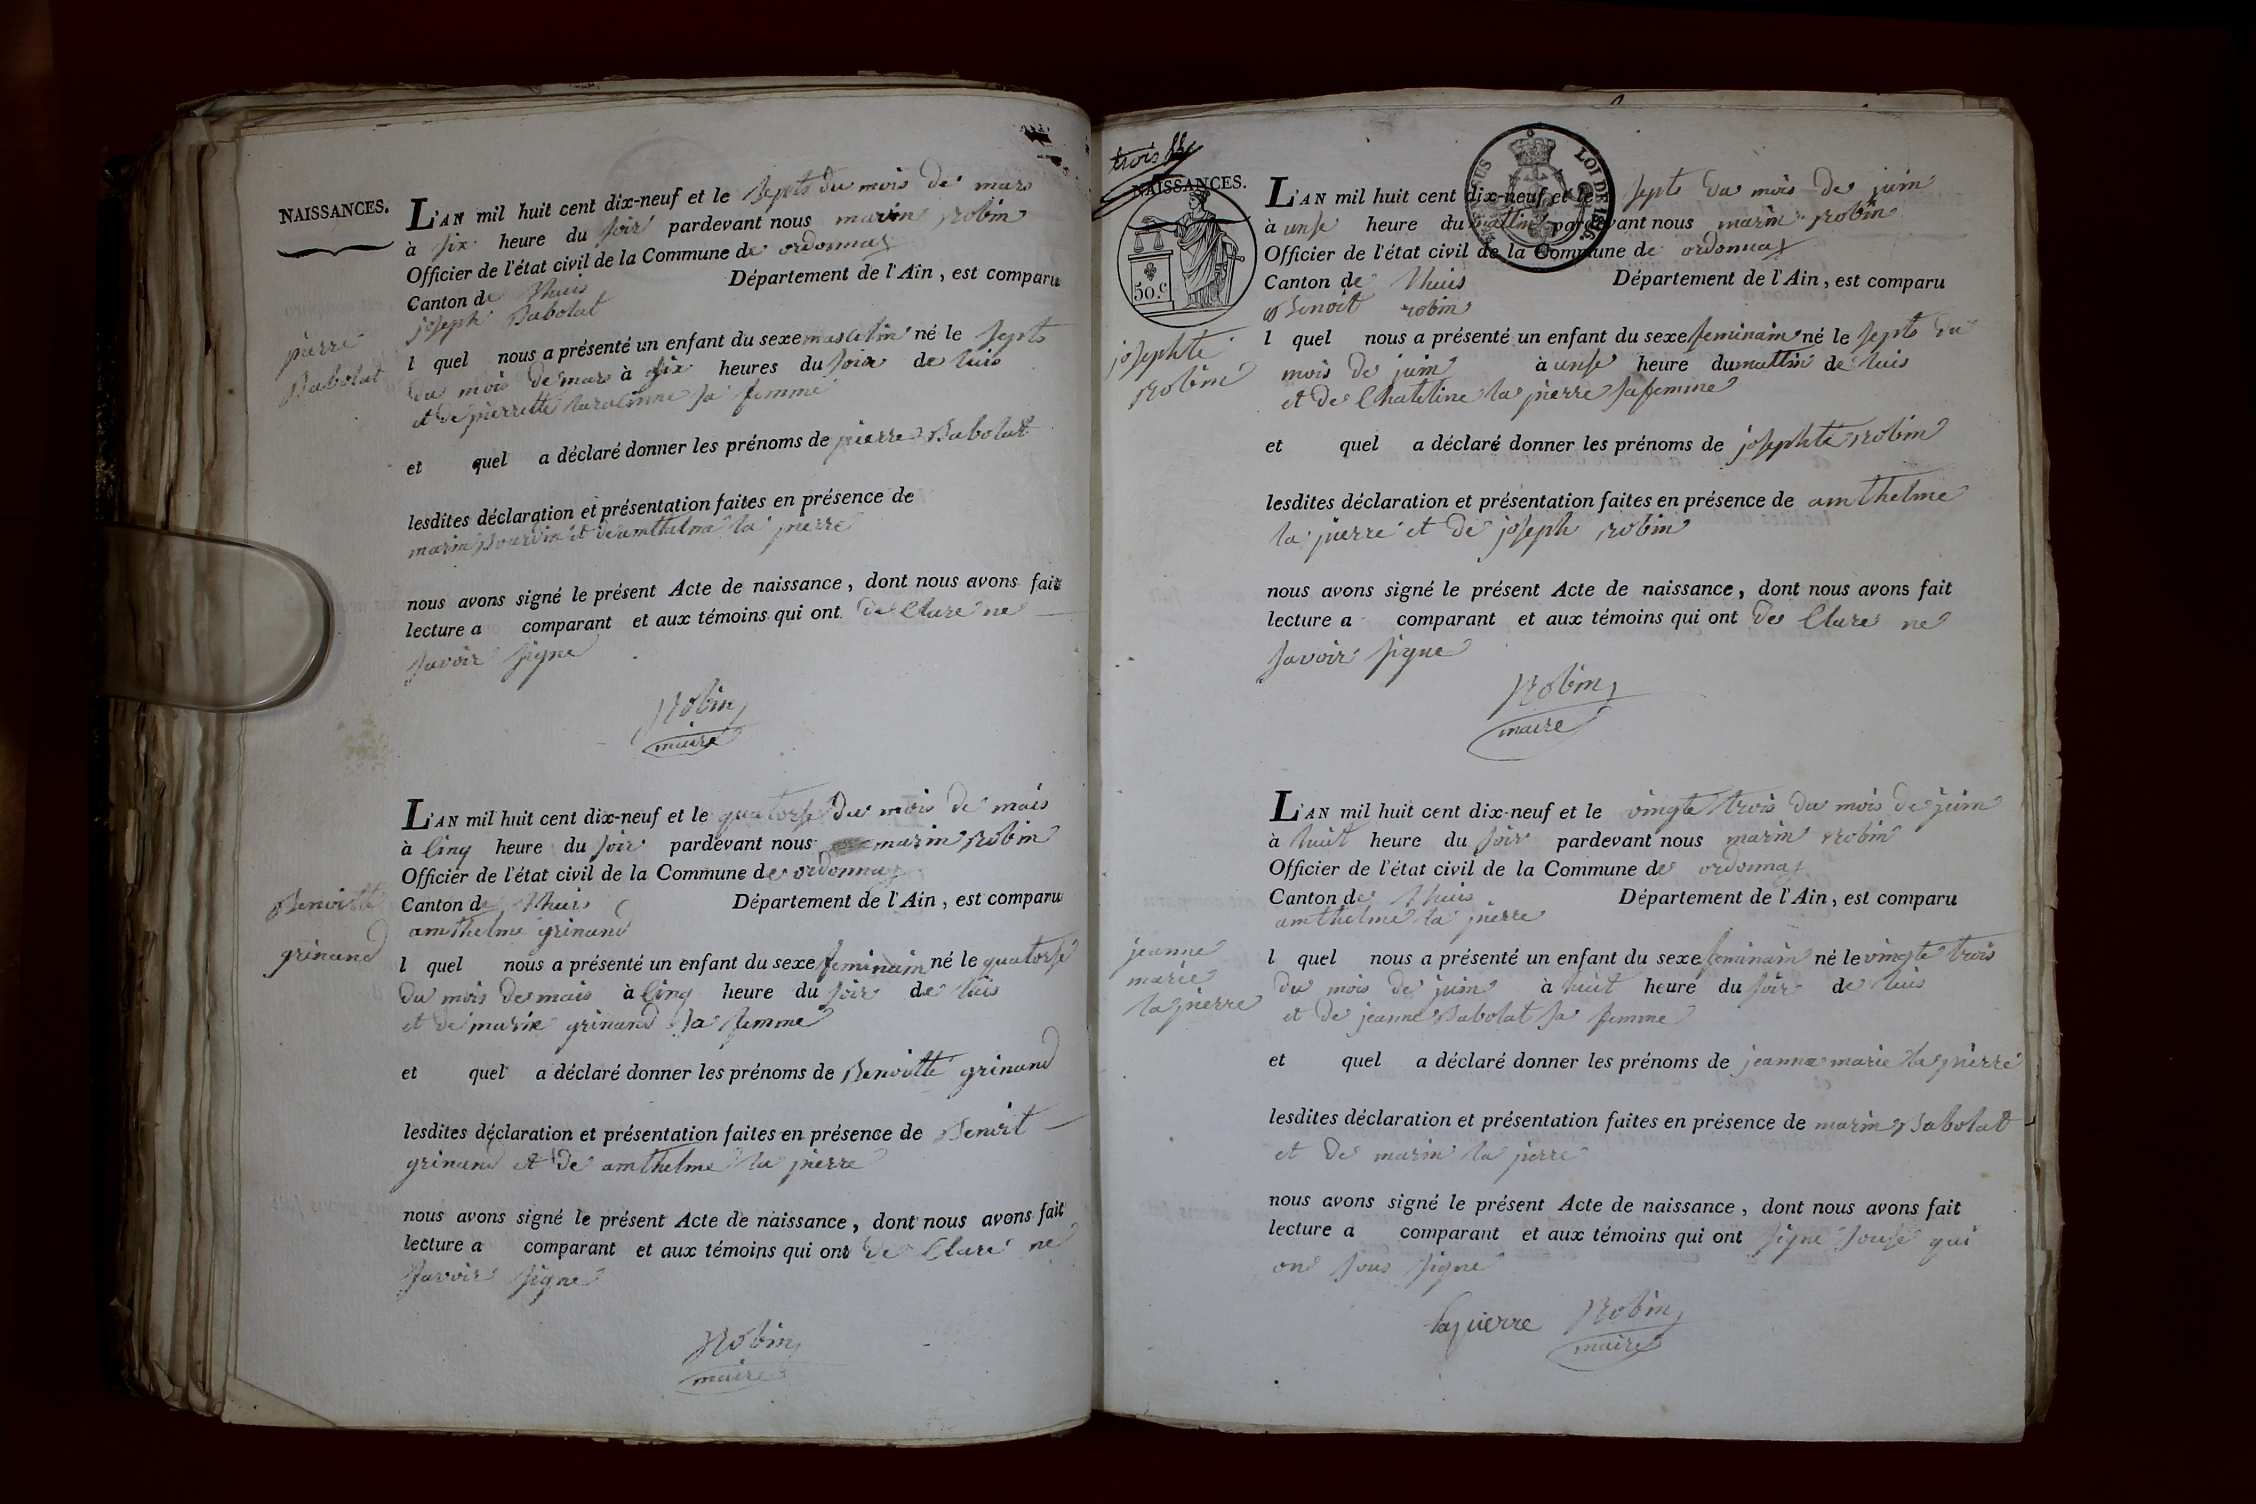 NAISSANCES.
L'AN mil huit cent dix-neuf et le septs du mois de mars
à six heure du soir pardevant nous marin robin
Officier de l'état civil de la Commune de ordonnas
Canton de Lhuis Département de l'Ain, est comparu
joseph Babolat
pierre
Babolat
l quel nous a présenté un enfant du sexe masculin né le septs
du mois de mars à six heures du soir de luis
et de pierrette sa femme
et quel a déclaré donner les prénoms de pierre Babolat
lesdites déclaration et présentation faites en présence de
marin Bourdin et de amthelme la pierre
nous avons signé le présent Acte de naissance, dont nous avons fait
lecture a comparant et aux témoins qui ont de Clare ne
savoir signe
Robin
maire
L'AN mil huit cent dix-neuf et le quatorse du mois de mais
à Cinq heure du soir pardevant nous marin robin
Officier de l'état civil de la Commune de ordonnas
Canton de Lhuis Département de l'Ain, est comparu
amthelme grinand
Benoitte
grinand
l quel nous a présenté un enfant du sexe feminain né le quatorse
du mois de mais à Cinq heure du soir de luis
et de marie grinand sa femme
et quel a déclaré donner les prénoms de Benoitte grinand
lesdites déclaration et présentation faites en présence de Benoit
grinand et de amthelme la pierre
nous avons signé le présent Acte de naissance, dont nous avons fait
lecture a comparant et aux témoins qui ont de Clare ne
savoir signe
Robin
maire
trois
NAISSANCES.
LOI DE 1816.
50.c
L'AN mil huit cent dix-neuf et le septs du mois de juin
à unse heure du mattin pardevant nous marin robin
Officier de l'état civil de la Commune de ordonnas
Canton de Lhuis Département de l'Ain, est comparu
Benoit robin
josephte
robin
l quel nous a présenté un enfant du sexe feminain né le septs du
mois de juin à unse heure du mattin de luis
et de Chateline la pierre sa femme
et quel a déclaré donner les prénoms de josephte robin
lesdites déclaration et présentation faites en présence de amthelme
la pierre et de joseph robin
nous avons signé le présent Acte de naissance, dont nous avons fait
lecture a comparant et aux témoins qui ont de Clare ne
savoir signe
Robin
maire
L'AN mil huit cent dix-neuf et le vingte trois du mois de juin
à huit heure du soir pardevant nous marin robin
Officier de l'état civil de la Commune de ordonnas
Canton de Lhuis Département de l'Ain, est comparu
amthelme la pierre
jeanne
marie
la pierre
l quel nous a présenté un enfant du sexe feminain né le vingte trois
du mois de juin à huit heure du soir de luis
et de jeanne Babolat sa femme
et quel a déclaré donner les prénoms de jeanne marie la pierre
lesdites déclaration et présentation faites en présence de marin Babolat
et de marin la pierre
nous avons signé le présent Acte de naissance, dont nous avons fait
lecture a comparant et aux témoins qui ont signe qui
ond sous signe
lapierre Robin
maire